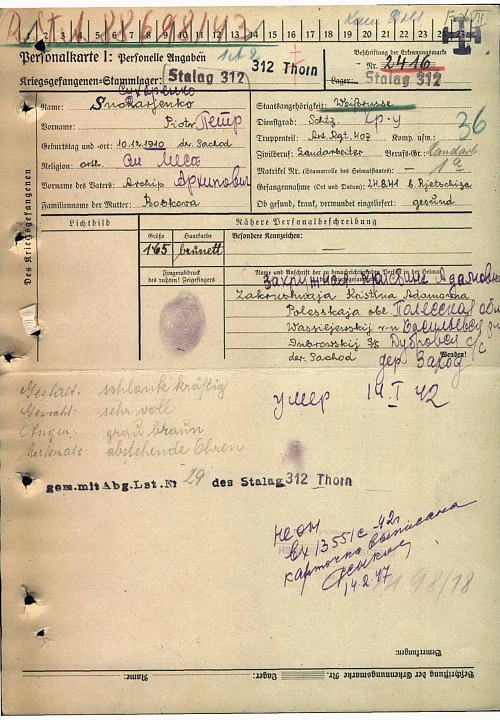 1 2 3 4 5 6 7 8 9 10 11 12 13 14 15 16 17 18 19 20 21 22 23
Personalkarte I: Personelle Angaben
Kriegsgefangenen-Stammlager: Stalag 312
312 Thorn
Beschriftung der Erkennungsmarke
Nr. 2416
Lager: Stalag 312
Des Kriegsgefangenen
Сухаренко
Name: Sucharjenko
Vorname: Piotr Петр
Geburtstag und -ort: 10.12.1910 der. Sachod
Religion: orth.
Vorname des Vaters: Archip Архипович
Familienname der Mutter: Bobkova
Staatsangehörigkeit: Weißrusse
Dienstgrad: Schtz. кр-ц
Truppenteil: Art. Rgt. 407 Komp. usw.:
36
Zivilberuf: Landarbeiter Berufs-Gr.: Landarb
Matrikel Nr. (Stammrolle des Heimatstaates): —
Gefangennahme (Ort und Datum): 24.8.41 b. Rjetschiza
Ob gesund, krank, verwundet eingeliefert: gesund
Lichtbild
Nähere Personalbeschreibung
Größe Haarfarbe Besondere Kennzeichen:
1.65 brünett —
Fingerabdruck
des rechten! Zeigefingers
Name und Anschrift der zu benachrichtigenden Person in der Heimat
des Kriegsgefangenen
Zakrushnaja Kristina Adamowna
Polesskaja obl. Полесская обл
Wassiljewskij r-n
Dubrowskij s/s Дубровск с/с
der. Sachod дер. Заход
Wenden!
Gestalt: schlank kräftig
Gesicht: sehr voll
Augen: grau braun
Merkmale: abstehende Ohren
умер 14.I 42
gem. mit Abg. Lst. Nr 29 des Stalag 312 Thorn
вх 13551с-42г
карточка выписана
14.2.47
Bemerkungen:
Beschriftung der Erkennungsmarke Nr. Lager: Name: